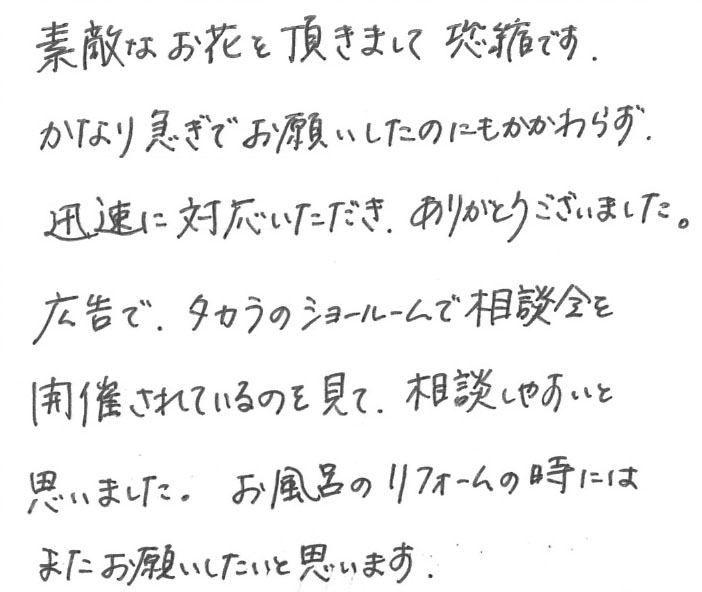 素敵なお花を頂きまして恐縮です.
かなり急ぎでお願いしたのにもかかわらず.
迅速に対応いただき.ありがとうございました。
広告で.タカラのショールームで相談会を
開催されているのを見て.相談しやすいと
思いました。お風呂のリフォームの時には
またお願いしたいと思います.